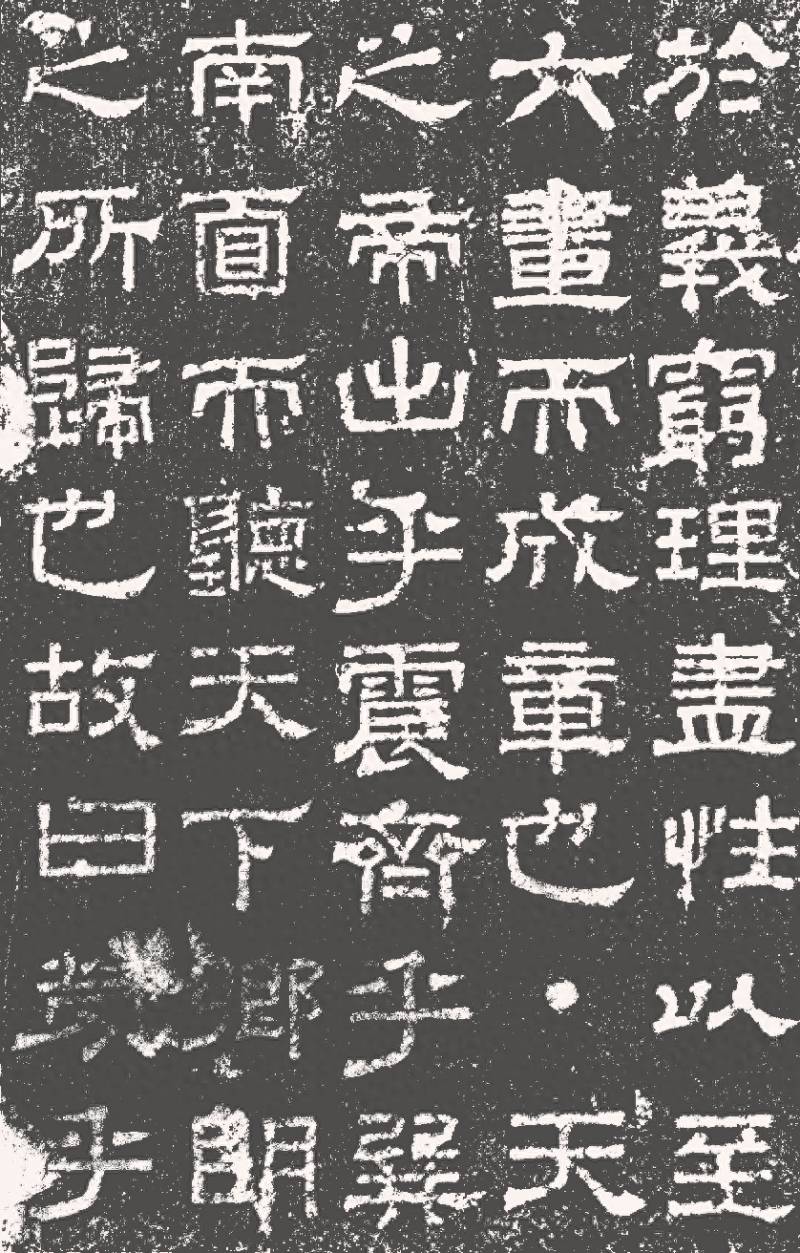 於義窮理盡性以至
六畫而成章也・天
之帝出乎震齊乎巽
南面而聽天下鄉明
之所歸也故曰勞乎